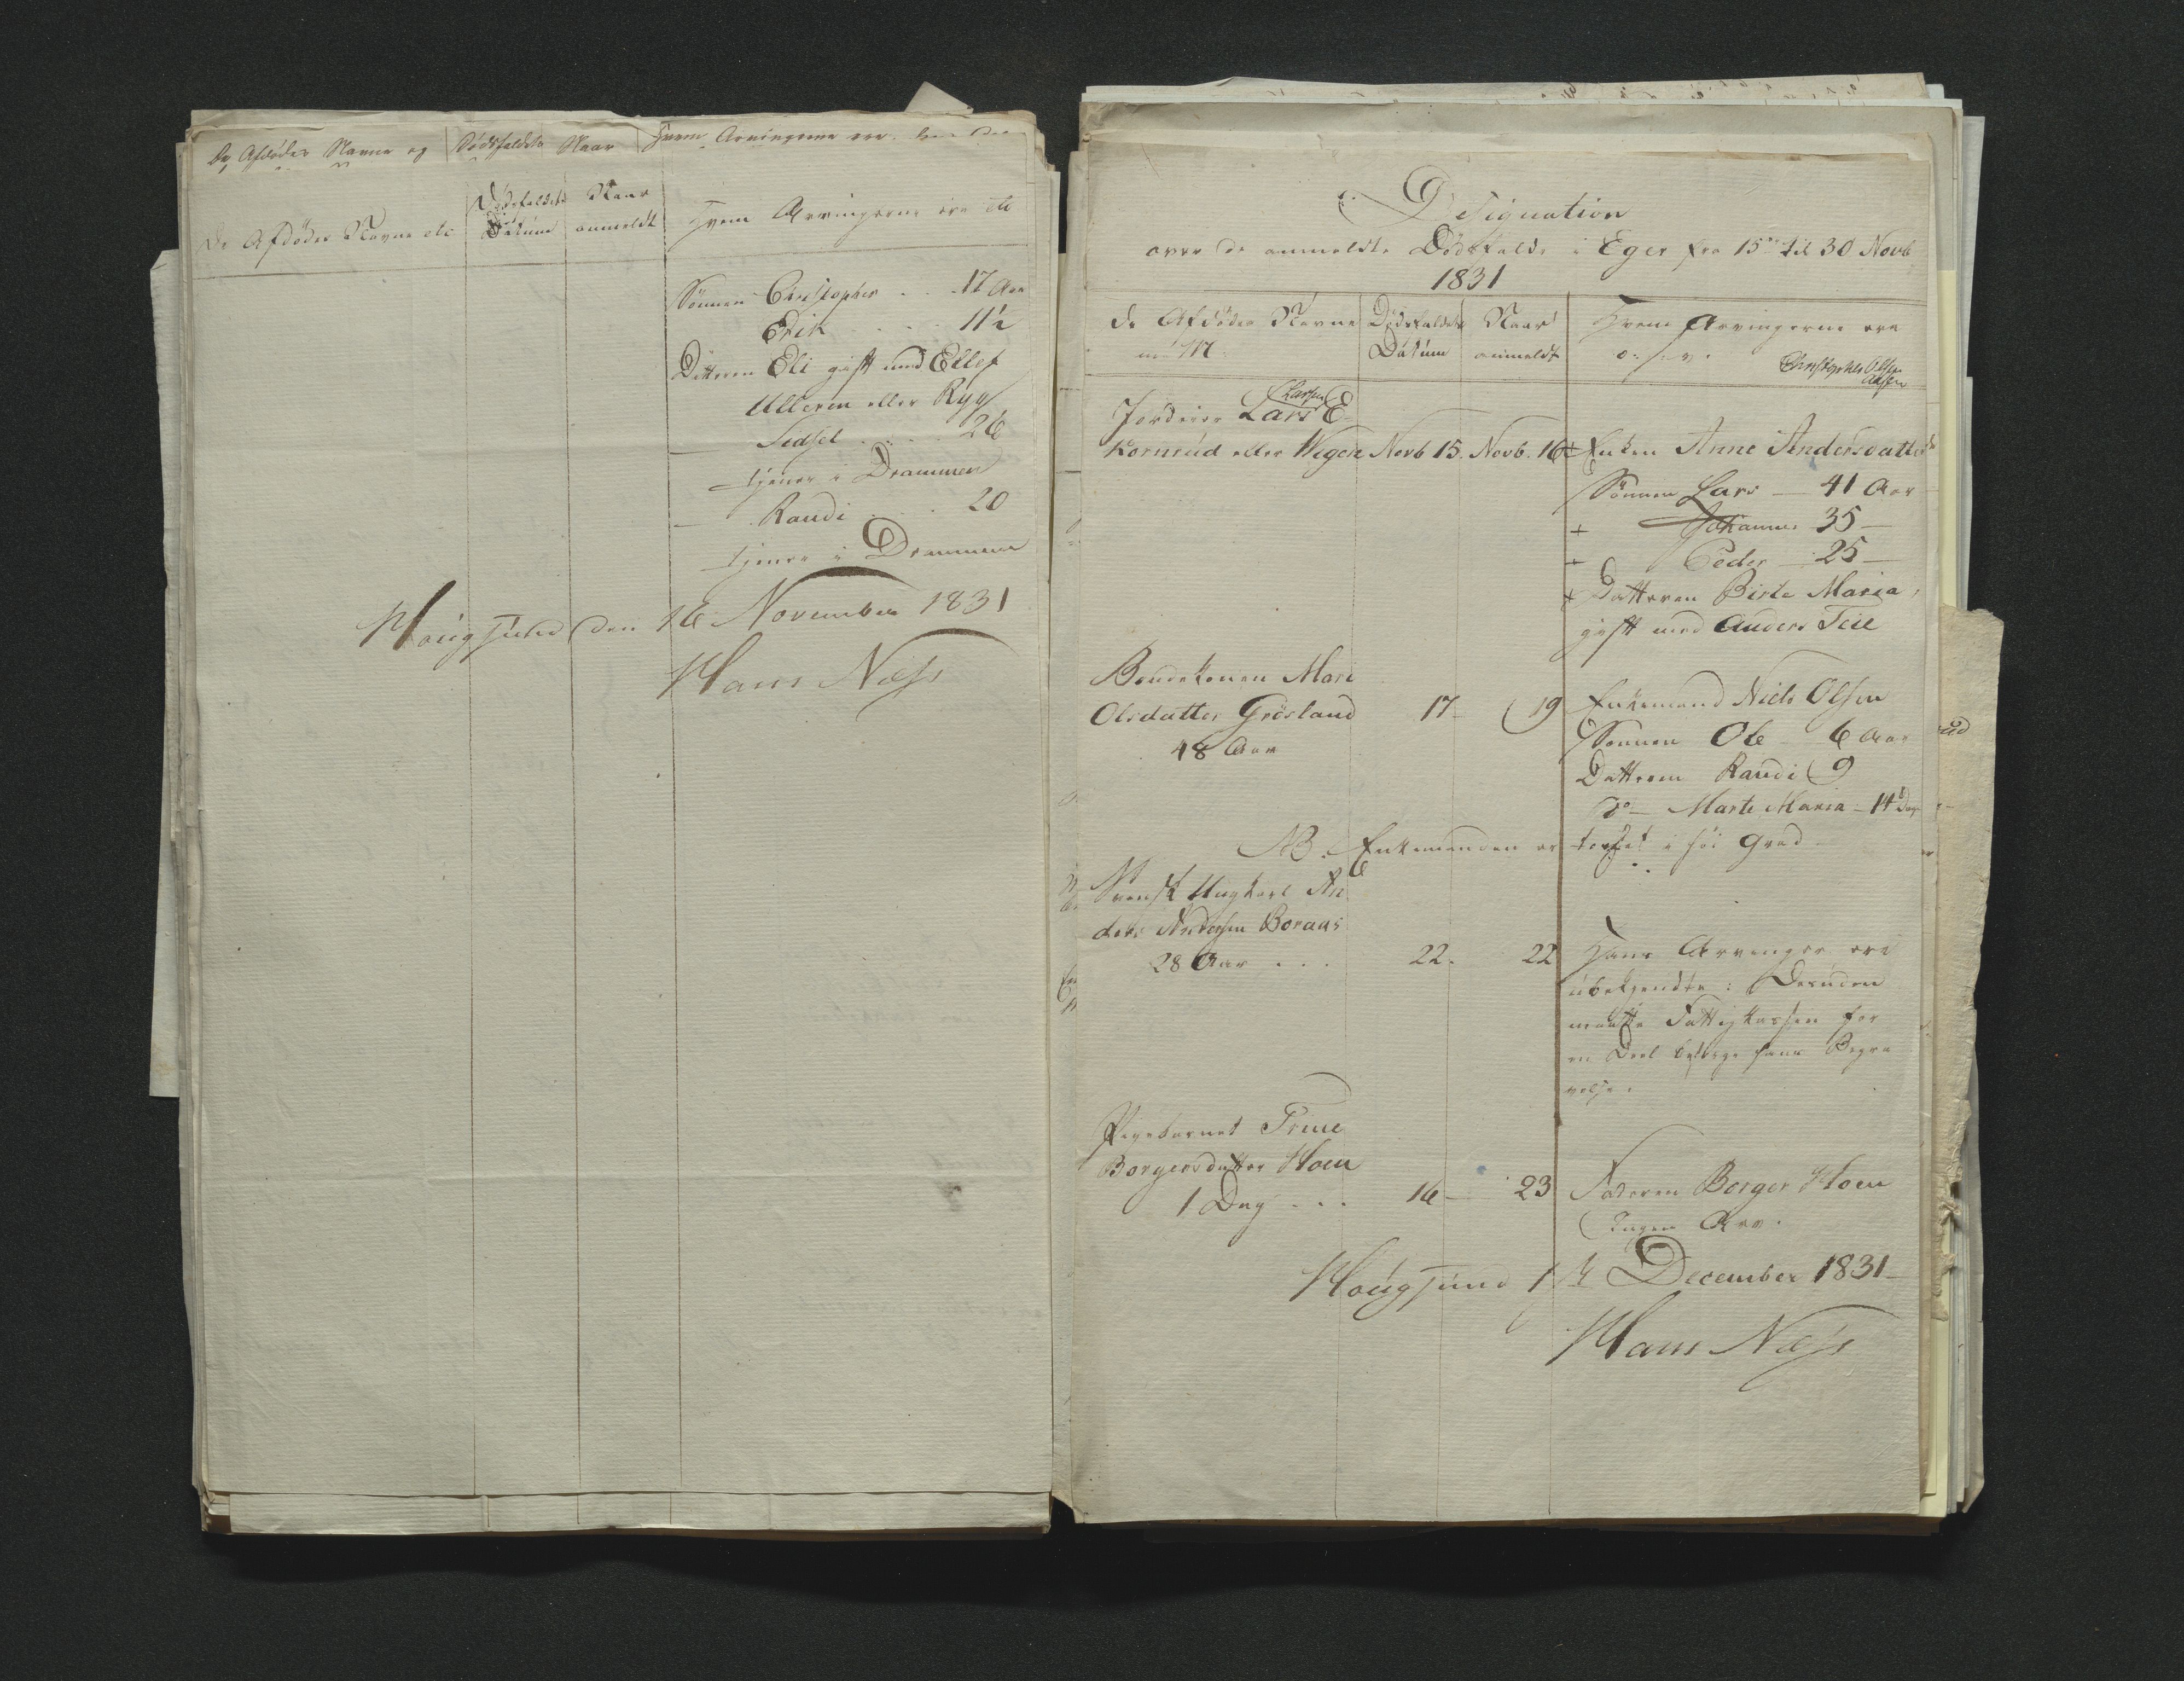 De Afdødes Navne og Dødsfaldets Naar Hvem Arvingerne ere
De Afdødes Navne etc Dødsfaldets Datum Naar anmeldt Hvem Arvingerne ere etc
Sönnen Christopher . . . 17 Aar
Erik . . . 11½
Datteren Eli gift med Ellef
Ulleren eller Ryg
— Sidsel . . . . 26
tjener i Drammen
— Randi . . . 20
tjener i Drammen
Hougsund den 16 November 1831
Hans Næss
Designation
over de anmeldte Dødsfalde i Eger fra 15de til 30 Novb
1831
De Afdødes Navne Dödsfaldets Naar Hvem Arvingerne ere
m: M: Datum anmeldt o: s: v. Christopher Olsen
Aasen
Larsen
Jordeier Lars E
Kornrud eller Wegere Novb 15. Novb. 16 + Enken Anne Andersdatter
Sönnen Lars — 41 Aar
+ Johannes 35 —
+ Peder — 25 —
+ Datteren Birte Maria,
gift med Anders Teie
Bondekonen Mari
Olsdatter Grösland 17 — 19 Enkemand Niels Olsen
48 Aar Sönnen Ole — 6 Aar
Datteren Randi 9
do — Marte Maria — 14 Dage
NB. Enkemanden er trængt i höi Grad.
Svensk Ungkarl An
ders Andersen Boraas
28 Aar . . . 22. 22 Hans Arvinger ere
ubekjendte: Desuden
maatte Fattigkassen for
en Deel besørge hans Begra
velse.
Pigebarnet Trine
Borgersdatter Hoen
1 Dag . . . 16 — 23 Faderen Borger Hoen
Ingen Arv.
Hougsund 1ste December 1831
Hans Næss